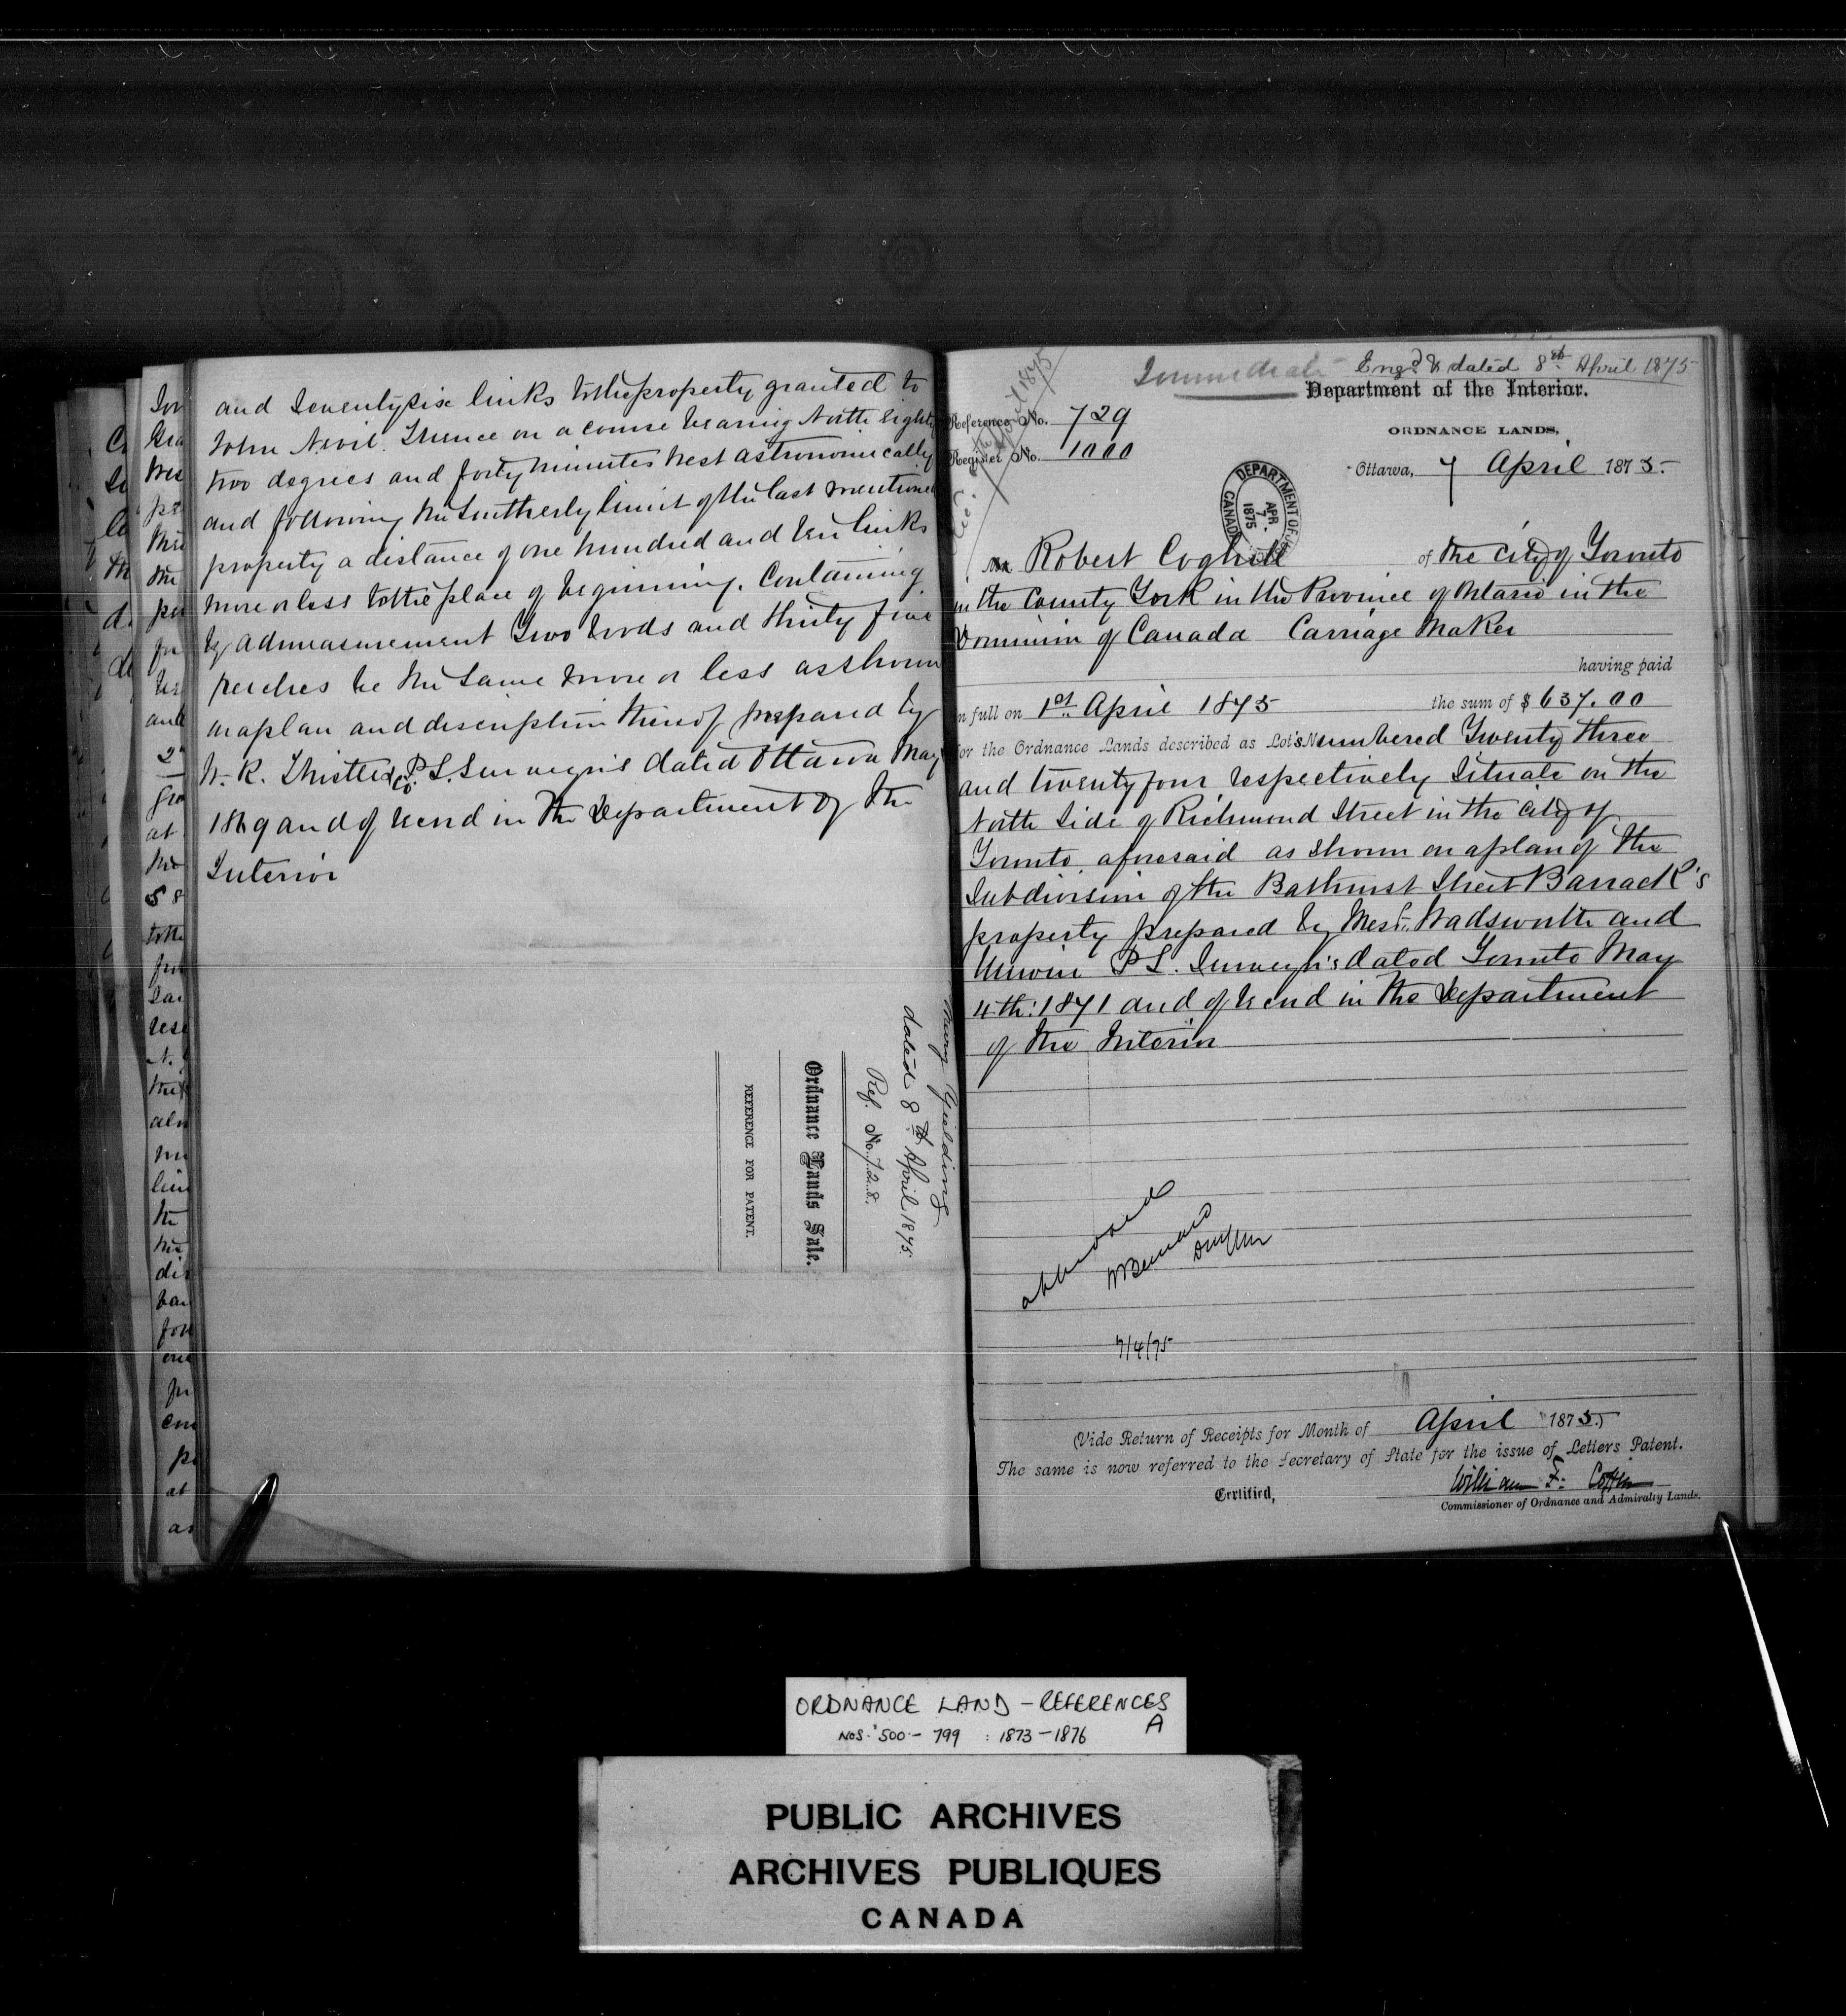 and Seventysix links to the property granted to
John Nevil. Thence on a course bearing North eighty
two degrees and forty minutes West astronomically
and following the Southerly limit of the last mentioned
property a distance of one hundred and ten links
more or less to the place of beginning. Containing
by admeasurement Two roods and thirty five
perches be the same more or less as shown
on a plan and description thereof prepared by
W. R. Thistle & Co. P.L. Surveyors dated Ottawa May
1869 and of record in the Department of the
Interior
Mary Gielding
dated 8th April 1875.
Ref. No. 728.
Ordnance Lands Sale.
REFERENCE FOR PATENT.
Immediate Engd & dated 8th April 1875
Department of the Interior.
Reference No. 729
ORDNANCE LANDS,
Register No. 1000
Ottawa, 7 April 1875.
DEPARTMENT OF
APR 7. 1875
CANADA
Mr Robert Coghill of the City of Toronto
in the County York in the Province of Ontario in the
Dominion of Canada Carriage Maker
having paid
in full on 1st April 1875 the sum of $637.00
for the Ordnance Lands described as Lot's Numbered Twenty three
and twenty four respectively Situate on the
North Side of Richmond Street in the City of
Toronto aforesaid as shown on a plan of the
Subdivision of the Bathurst Street Barrack's
property prepared by Messrs. Wadsworth and
Unwin P L. Surveyor's dated Toronto May
4th: 1871 and of record in the Department
of the Interior
7/4/75
(Vide Return of Receipts for Month of April 1875)
The same is now referred to the Secretary of State for the issue of Letters Patent.
Certified, William F. Coffin
Commissioner of Ordnance and Admiralty Lands.
ORDNANCE LAND - REFERENCES
NOS. 500 - 799 : 1873 - 1876 A
PUBLIC ARCHIVES
ARCHIVES PUBLIQUES
CANADA